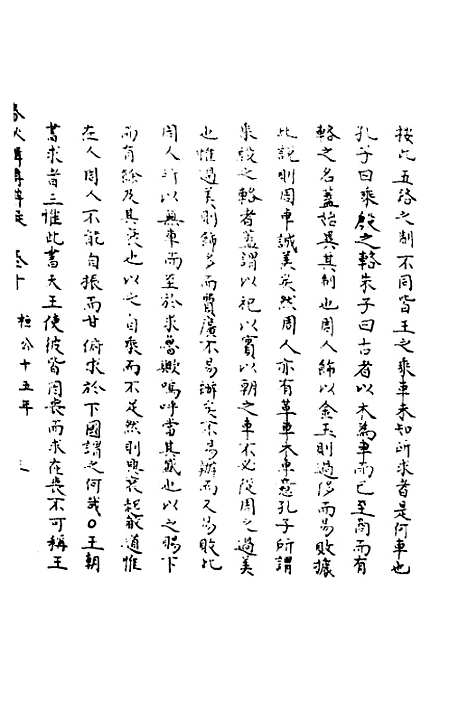 按此五路之制不同皆王之乘車未知所求者是何車也
孔子曰乘殷之輅朱子曰古者以木為車而已至商而有
輅之名蓋始異其制也周人飾以金玉則過侈而易敗據
此說則周車誠美矣然周人亦有革車木車意孔子所謂
乘殷之輅者蓋謂以祀以賓以朝之車不必從周之過美
也惟過美則飾多而費廣不易辦矣不易辦而又易敗此
周人所以無車而至於求魯歟嗚呼當其盛也以之賜下
而有餘及其衰也以之自乘而不足然則興衰起敝道惟
在人周人不能自振而甘俯求於下國謂之何哉○王朝
書求者三惟此書天王使彼皆因喪而求在喪不可稱王
春秋輯傳辨疑 卷十 桓公十五年